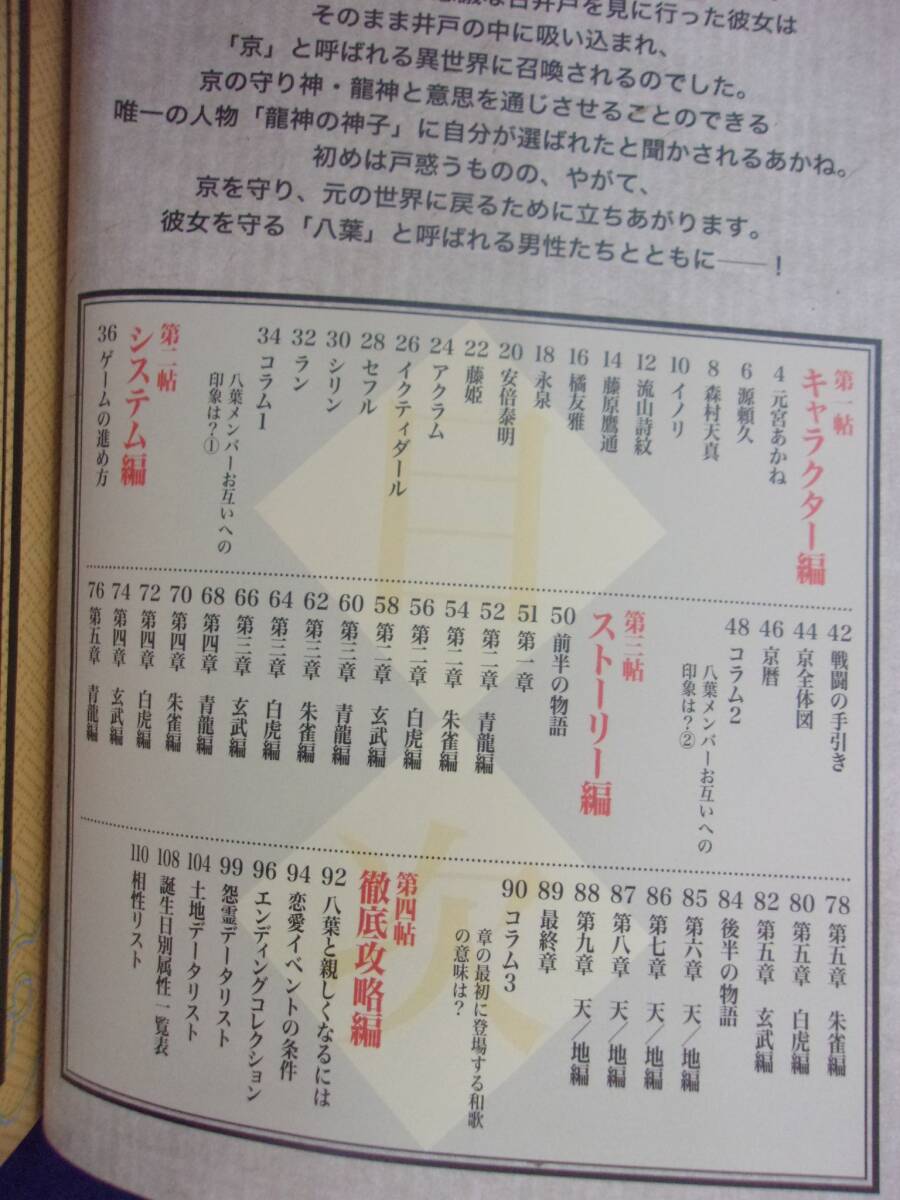 な古井戸を見に行った彼女は
そのまま井戸の中に吸い込まれ、
「京」と呼ばれる異世界に召喚されるのでした。
京の守り神・龍神と意思を通じさせることのできる
唯一の人物「龍神の神子」に自分が選ばれたと聞かされるあかね。
初めは戸惑うものの、やがて、
京を守り、元の世界に戻るために立ちあがります。
彼女を守る「八葉」と呼ばれる男性たちとともに──！
目次
第一帖
キャラクター編
4 元宮あかね
6 源頼久
8 森村天真
10 イノリ
12 流山詩紋
14 藤原鷹通
16 橘友雅
18 永泉
20 安倍泰明
22 藤姫
24 アクラム
26 イクティダール
28 セフル
30 シリン
32 ラン
34 コラム1
八葉メンバーお互いへの
印象は？①
第二帖
システム編
36 ゲームの進め方
42 戦闘の手引き
44 京全体図
46 京暦
48 コラム2
八葉メンバーお互いへの
印象は？②
第三帖
ストーリー編
50 前半の物語
51 第一章
52 第二章 青龍編
54 第二章 朱雀編
56 第二章 白虎編
58 第二章 玄武編
60 第三章 青龍編
62 第三章 朱雀編
64 第三章 白虎編
66 第三章 玄武編
68 第四章 青龍編
70 第四章 朱雀編
72 第四章 白虎編
74 第四章 玄武編
76 第五章 青龍編
78 第五章 朱雀編
80 第五章 白虎編
82 第五章 玄武編
84 後半の物語
85 第六章 天／地編
86 第七章 天／地編
87 第八章 天／地編
88 第九章 天／地編
89 最終章
90 コラム3
章の最初に登場する和歌
の意味は？
第四帖
徹底攻略編
92 八葉と親しくなるには
94 恋愛イベントの条件
96 エンディングコレクション
99 怨霊データリスト
104 土地データリスト
108 誕生日別属性一覧表
110 相性リスト